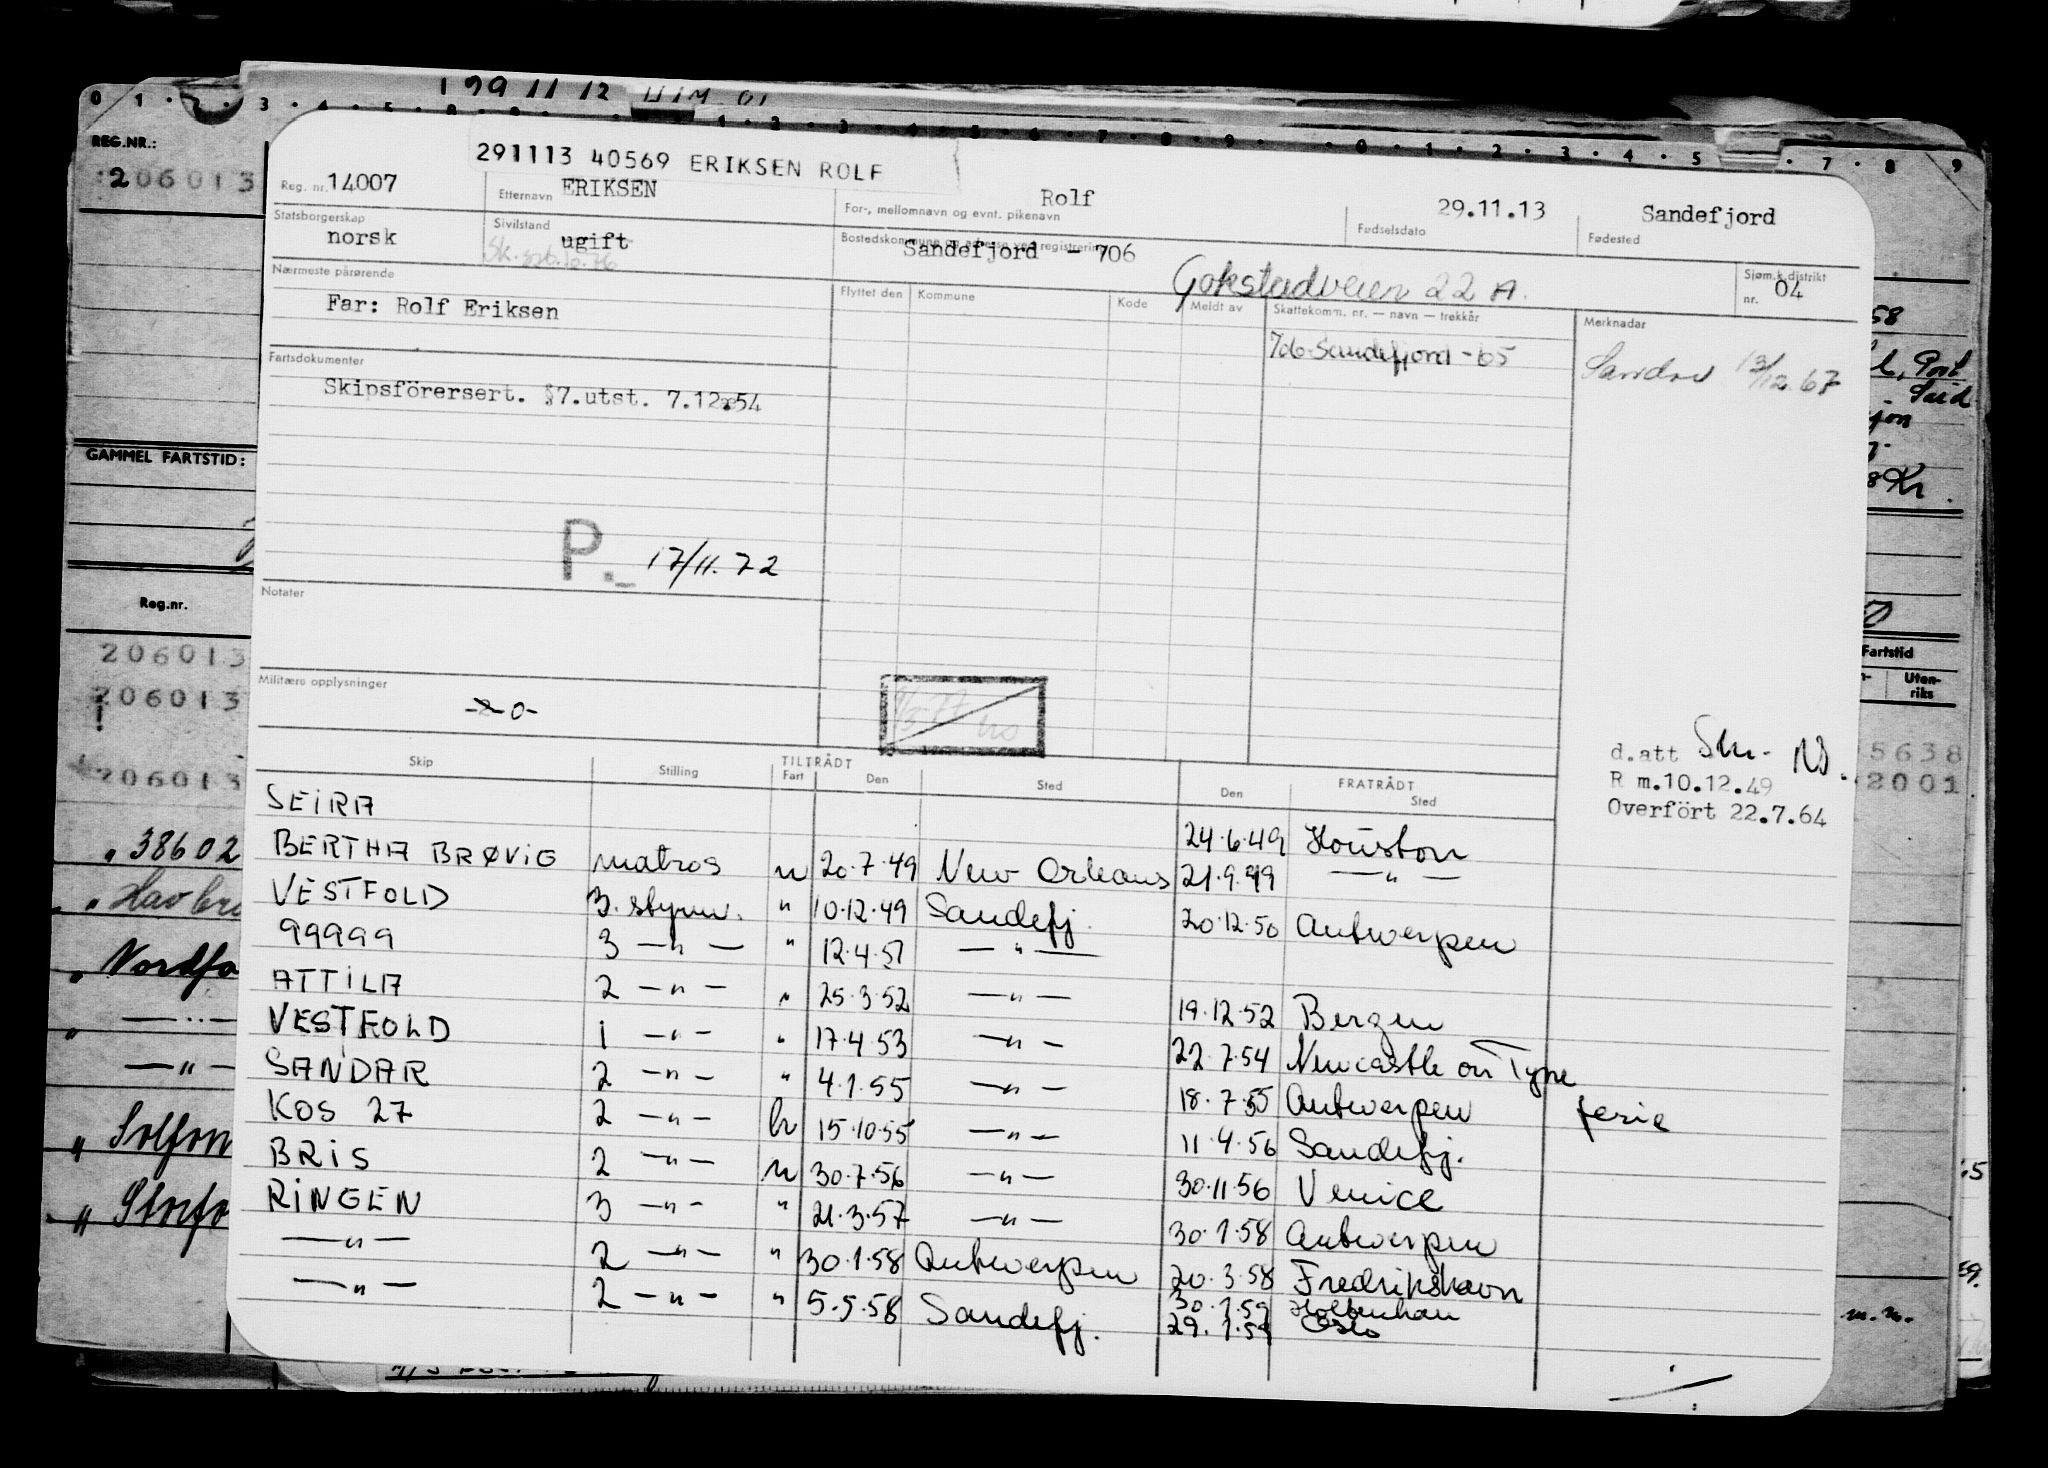 0 1 2 3 4 5
1 2 3 4 5 6 7 8 9 0 1 2 3 4 5 7 8 9
199 11 12
REG.NR.:
206013
291113 40569 ERIKSEN ROLF
Reg. nr. 14007
Etternavn ERIKSEN
For-, mellomnavn og evnt. pikenavn Rolf
Fødselsdato 29.11.13
Fødested Sandefjord
Statsborgerskap norsk
Sivilstand ugift
Bostedskommune og adresse ved registrering Sandefjord - 706
Gokstadveien 22 A.
Sjøm.k.distrikt nr. 04
Nærmeste pårørende
Far: Rolf Eriksen
Flyttet den Kommune Kode Meldt av Skattekomm. nr. — navn — trekkår Merknadar
706 Sandefjord - 65
Sandar 13/12 67
Fartsdokumenter
Skipsförersert. §7.utst. 7.12.54
GAMMEL FARTSTID:
P. 17/11.72
Notater
Reg.nr.
206013
206013
206013
Militære opplysninger
-0-
Fartstid
Uten-
riks
5638
2001
d.att
R m.10.12.49
Overfört 22.7.64
Skip Stilling TILTRÅDT Fart Den Sted FRATRÅDT Den Sted
SEIRA 24.6.49 Houston
BERTHA BRØVIG matros u 20.7.49 New Orleans 21.9.49 — " —
VESTFOLD 3. styrm. " 10.12.49 Sandefj. 20.12.50 Antwerpen
99999 3 — " — " 12.4.51 — " —
ATTILA 2 — " — " 25.3.52 — " — 19.12.52 Bergen
VESTFOLD 1 — " — " 17.4.53 — " — 22.7.54 Newcastle on Tyne
SANDAR 2 — " — " 4.1.55 — " — 18.7.55 Antwerpen ferie
KOS 27 2 — " — hv 15.10.55 — " — 11.4.56 Sandefj.
BRIS 2 — " — u 30.7.56 — " — 30.11.56 Venice
RINGEN 3 — " — " 21.3.57 — " — 30.1.58 Antwerpen
— " — 2 — " — " 30.1.58 Antwerpen 20.3.58 Fredrikshavn
— " — 2 — " — " 5.5.58 Sandefj. 30.1.59
29.1.59 Oslo
" 38602
" Nordfo
" Solfon
" Storfo
m.n.